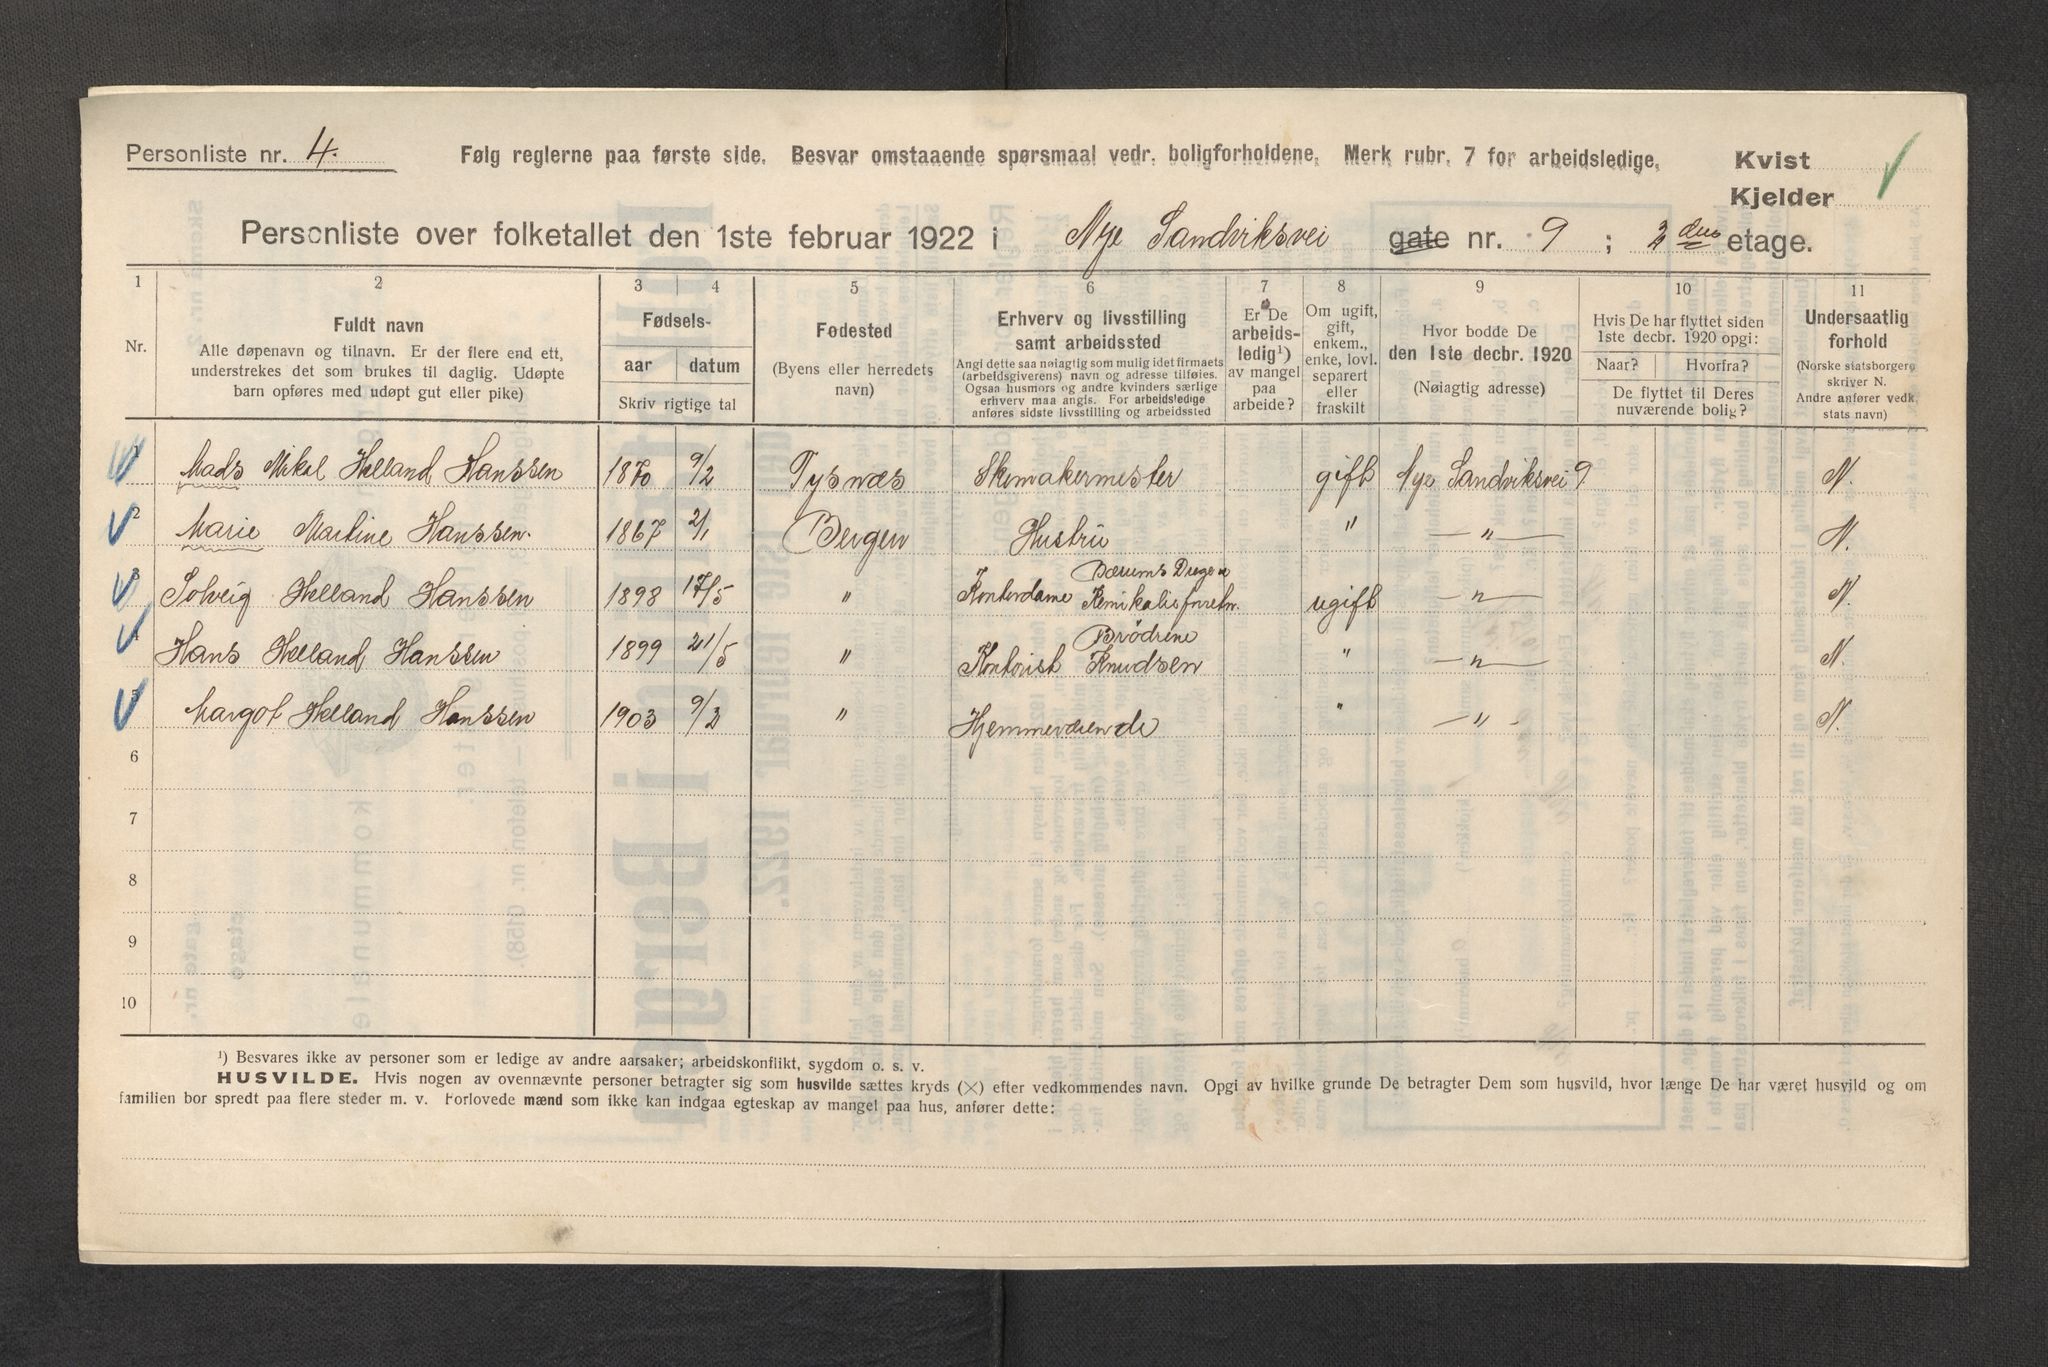 Personliste nr. 4. Følg reglerne paa første side. Besvar omstaaende spørsmaal vedr. boligforholdene. Merk rubr. 7 for arbeidsledige. Kvist
Kjelder
Personliste over folketallet den 1ste februar 1922 i Nye Sandviksvei gate nr. 9 ; 2 den etage.
1 2 3 4 5 6 7 8 9 10 11
Nr.
Fuldt navn
Alle døpenavn og tilnavn. Er der flere end ett,
understrekes det som brukes til daglig. Udøpte
barn opføres med udøpt gut eller pike)
Fødsels-
aar datum
Skriv rigtige tal
Fødested
(Byens eller herredets
navn)
Erhverv og livsstilling
samt arbeidssted
Angi dette saa nøiagtig som mulig idet firmaets
(arbeidsgiverens) navn og adresse tilføies.
Ogsaa husmors og andre kvinders særlige
erhverv maa angis. For arbeidsledige
anføres sidste livsstilling og arbeidssted
Er De
arbeids-
ledig¹)
av mangel
paa
arbeide?
Om ugift,
gift,
enkem.,
enke, lovl.
separert
eller
fraskilt
Hvor bodde De
den 1ste decbr. 1920
(Nøiagtig adresse)
Hvis De har flyttet siden
1ste decbr. 1920 opgi:
Naar? Hvorfra?
De flyttet til Deres
nuværende bolig?
Undersaatlig
forhold
(Norske statsborgere
skriver N.
Andre anfører vedk.
stats navn)
1 Mads Mikal Helland Hanssen 1870 9/2 Tysnæs Skomakermester gift Nye Sandviksvei 9 N.
2 Marie Martine Hanssen. 1867 2/1 Bergen Hustru " — " — N.
3 Solveig Helland Hanssen 1898 17/5 " Kontordame Bærums Droge & Kemikalieforretn. ugift — " — N.
4 Hans Helland Hanssen 1899 21/5 " Kontorist Brödrene Knudsen " — " — N.
5 Margot Helland Hanssen 1903 9/2 " Hjemmeværende " — " - N.
6
7
8
9
10
¹) Besvares ikke av personer som er ledige av andre aarsaker; arbeidskonflikt, sygdom o. s. v.
HUSVILDE. Hvis nogen av ovennævnte personer betragter sig som husvilde sættes kryds (×) efter vedkommendes navn. Opgi av hvilke grunde De betragter Dem som husvild, hvor længe De har været husvild og om
familien bor spredt paa flere steder m. v. Forlovede mænd som ikke kan indgaa egteskap av mangel paa hus, anfører dette: